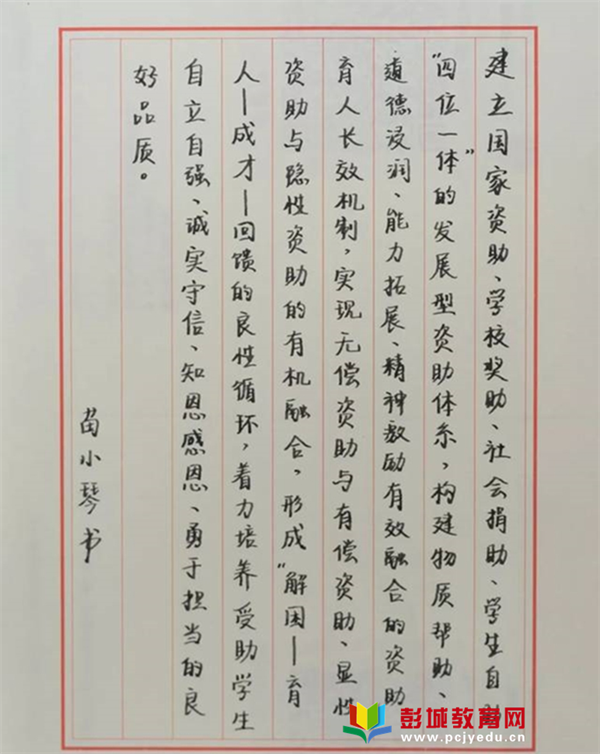 建立国家资助、学校奖助、社会捐助、学生自助
“四位一体”的发展型资助体系，构建物质帮助、
道德浸润、能力拓展、精神激励有效融合的资助
育人长效机制，实现无偿资助与有偿资助、显性
资助与隐性资助的有机融合，形成“解困—育
人—成才—回馈的良性循环，着力培养受助学生
自立自强、诚实守信、知恩感恩、勇于担当的良
好品质。
苗小琴书
彭城教育网
www.pcjyedu.cn